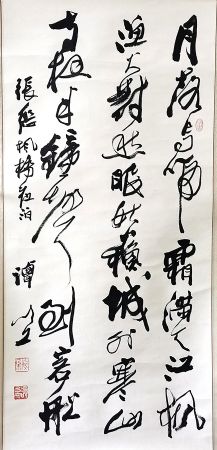 月落烏啼霜滿天江楓
漁火對愁眠姑蘇城外寒山
寺夜半鐘聲到客船
張繼楓橋夜泊 譚